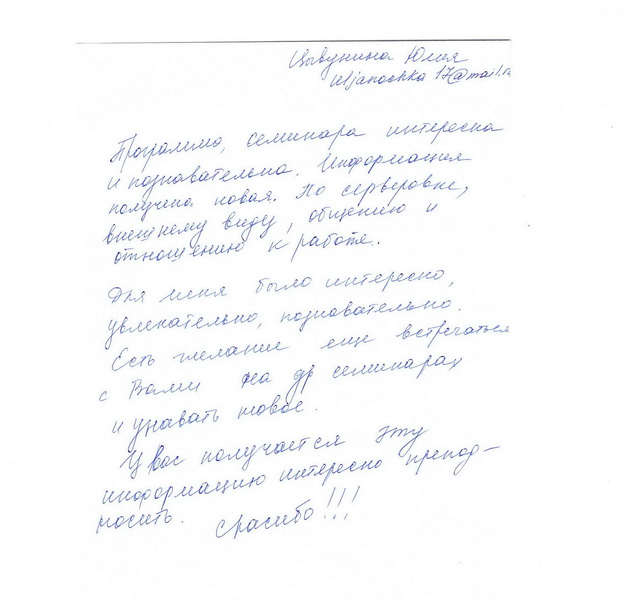 Цывунина Юлия
uljanochka 17@mail.r
Программа, семинара интересна
и познавательна. Информация
получена новая. По сервировке,
внешнему виду, общению и
отношению к работе.
Для меня было интересно,
увлекательно, познавательно.
Есть желание еще встречаться
с Вами на др семинарах
и узнавать новое.
У Вас получается эту
информацию интересно препод-
носить. Спасибо!!!